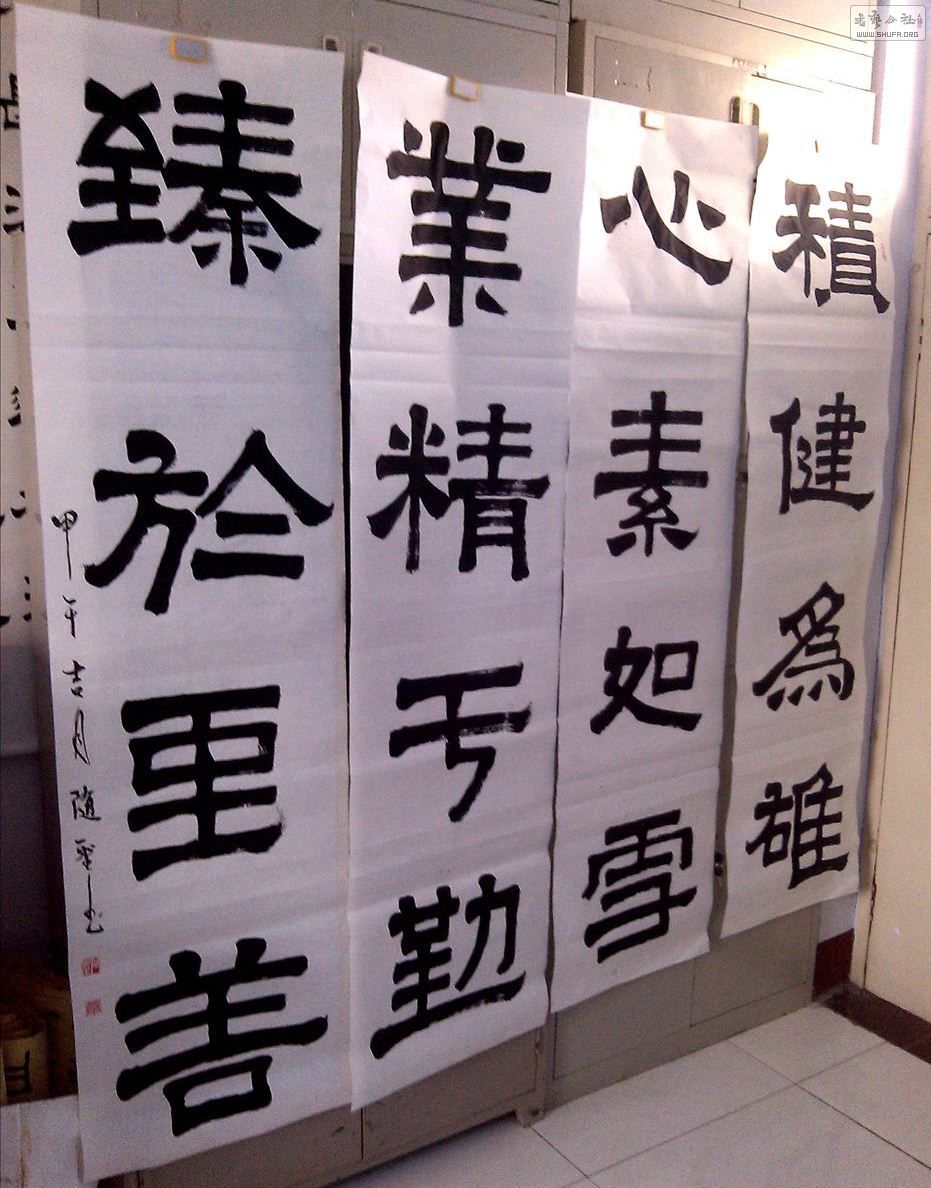 積健爲雄
心素如雪
業精于勤
臻於重善
甲午吉月随书
书艺公社
WWW.SHUFA.ORG